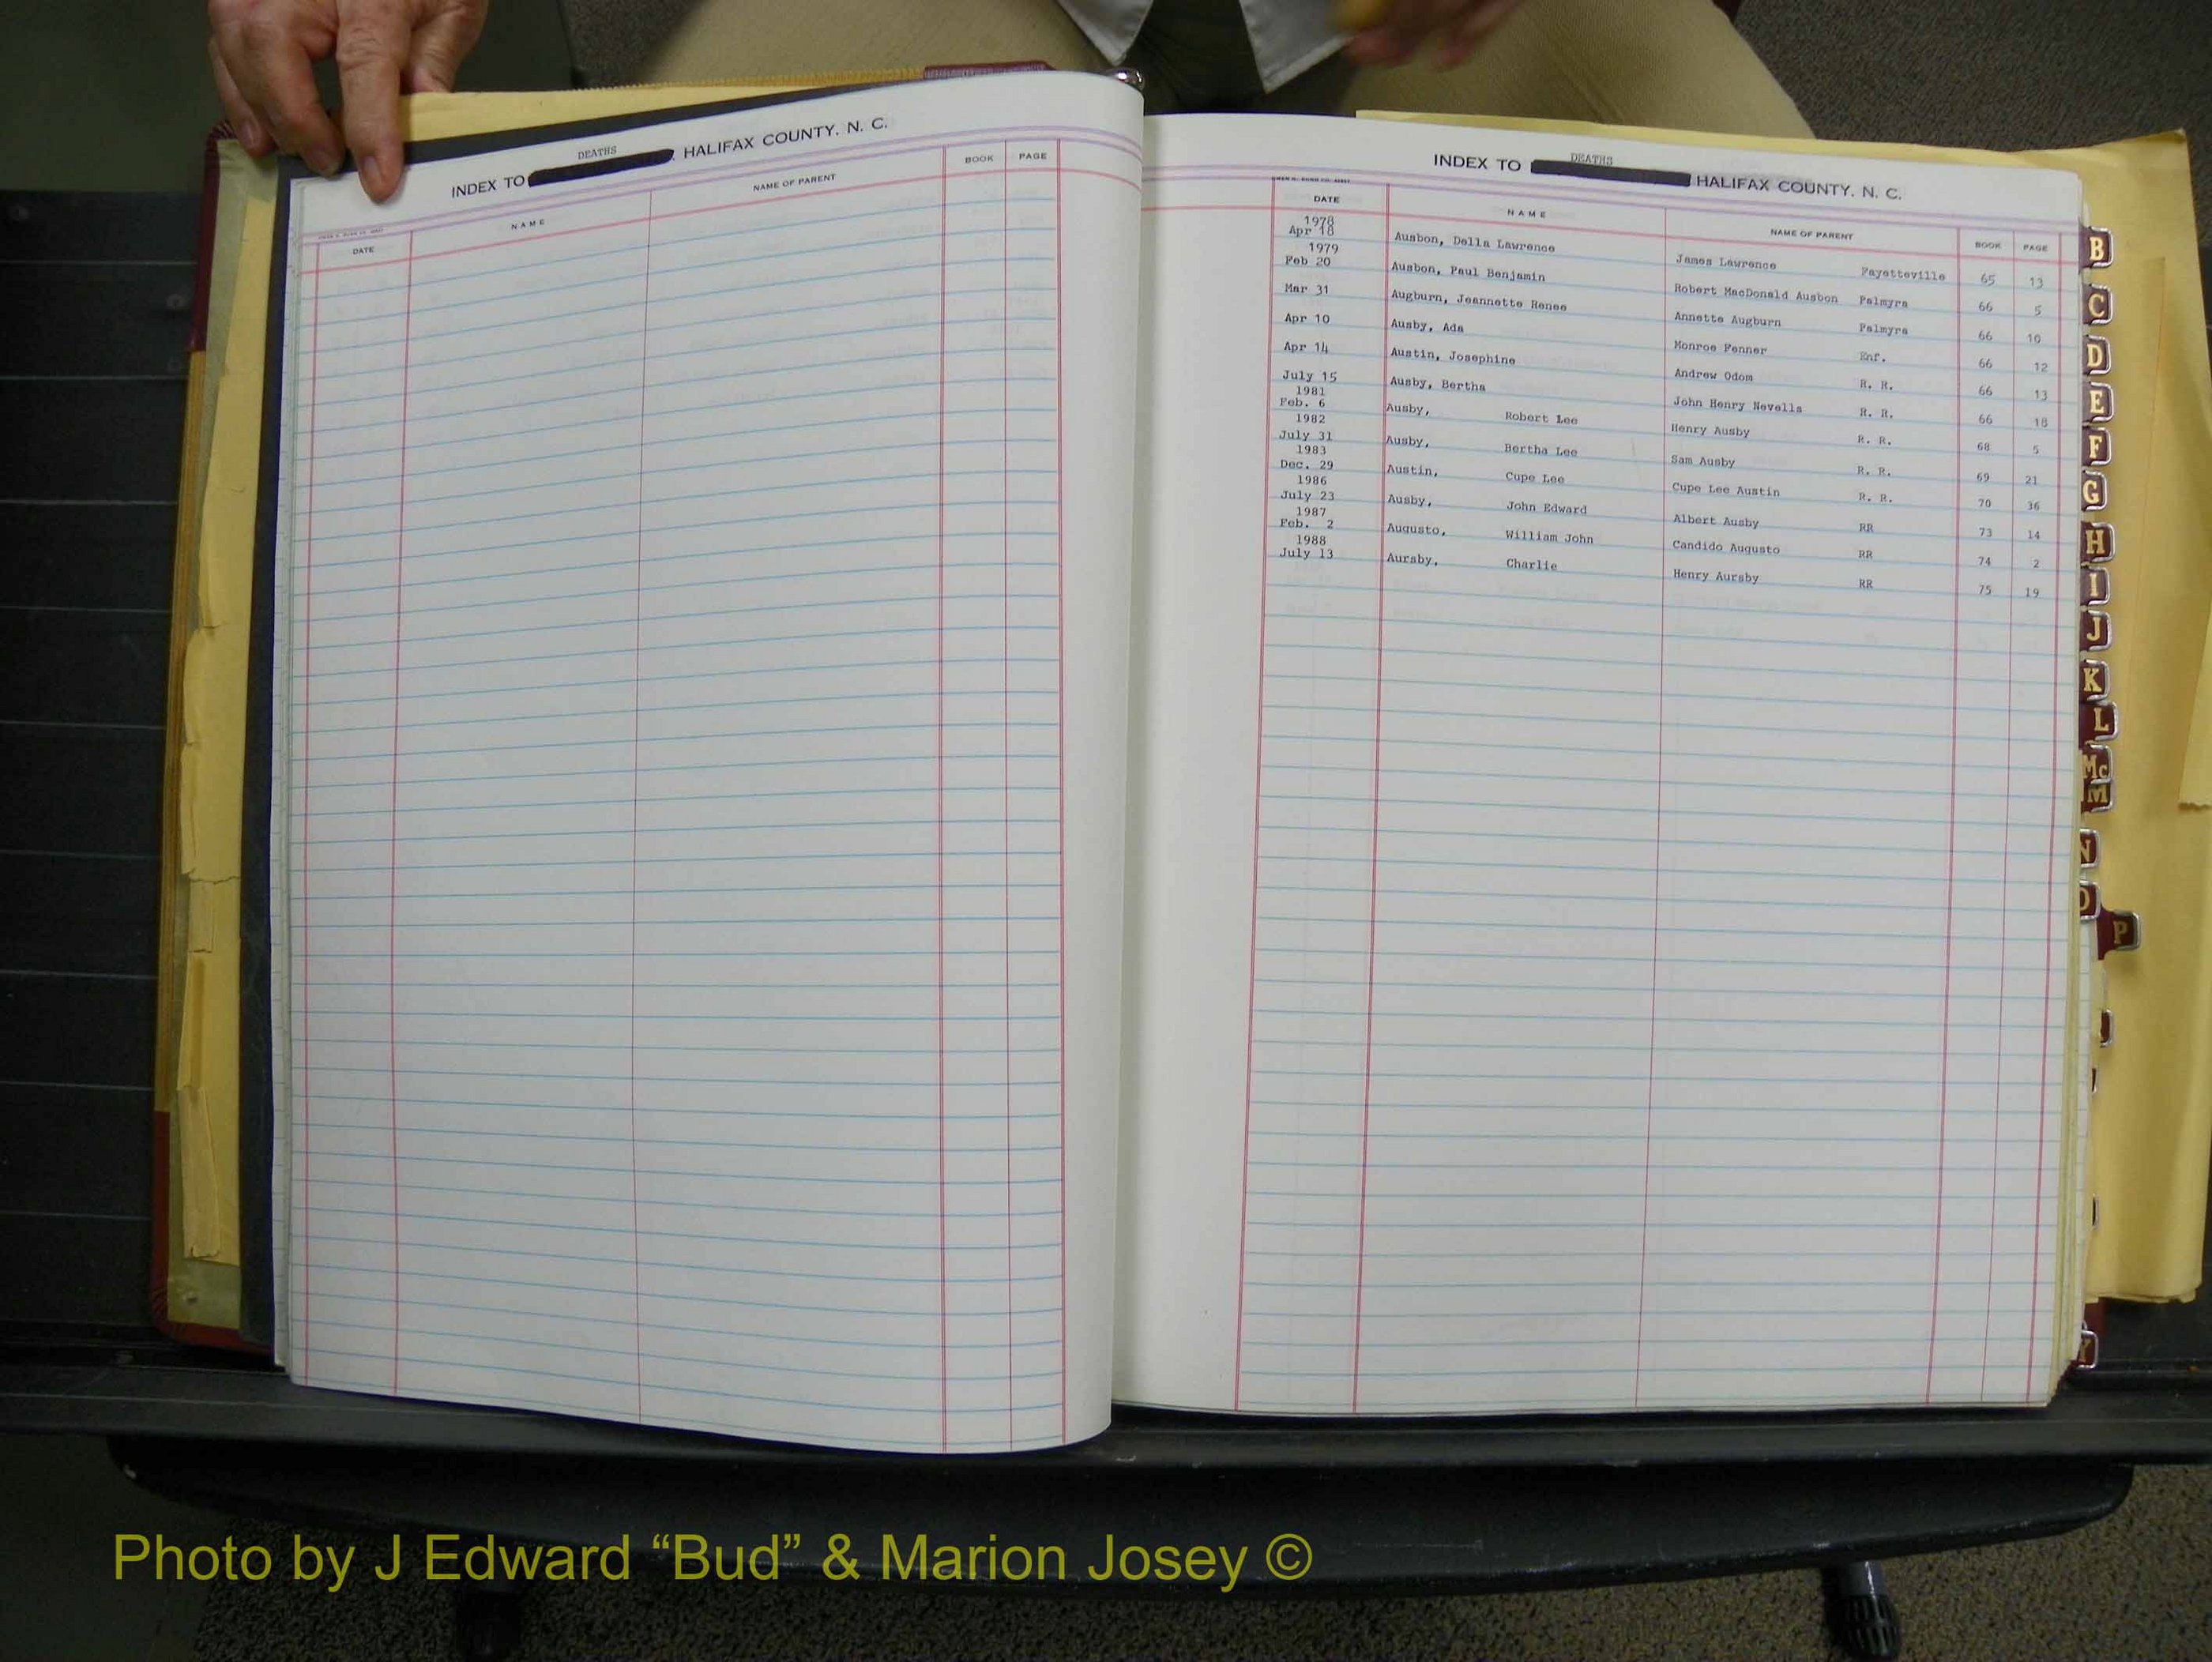 DEATHS
INDEX TO HALIFAX COUNTY, N. C.
DATE NAME NAME OF PARENT BOOK PAGE
DEATHS
INDEX TO HALIFAX COUNTY, N. C.
DATE NAME NAME OF PARENT BOOK PAGE
1978
Apr 18 Ausbon, Della Lawrence James Lawrence Fayetteville 65 13
1979
Feb 20 Ausbon, Paul Benjamin Robert MacDonald Ausbon Palmyra 66 5
Mar 31 Augburn, Jeannette Renee Annette Augburn Palmyra 66 10
Apr 10 Ausby, Ada Monroe Fenner Enf. 66 12
Apr 14 Austin, Josephine Andrew Odom R. R. 66 13
July 15 Ausby, Bertha John Henry Nevells R. R. 66 18
1981
Feb. 6 Ausby, Robert Lee Henry Ausby R. R. 68 5
1982
July 31 Ausby, Bertha Lee Sam Ausby R. R. 69 21
1983
Dec. 29 Austin, Cupe Lee Cupe Lee Austin R. R. 70 36
1986
July 23 Ausby, John Edward Albert Ausby RR 73 14
1987
Feb. 2 Augusto, William John Candido Augusto RR 74 2
1988
July 13 Aursby, Charlie Henry Aursby RR 75 19
B
C
D
E
F
G
H
I
J
K
L
Mc
M
N
O
P
Y
Photo by J Edward “Bud” & Marion Josey ©